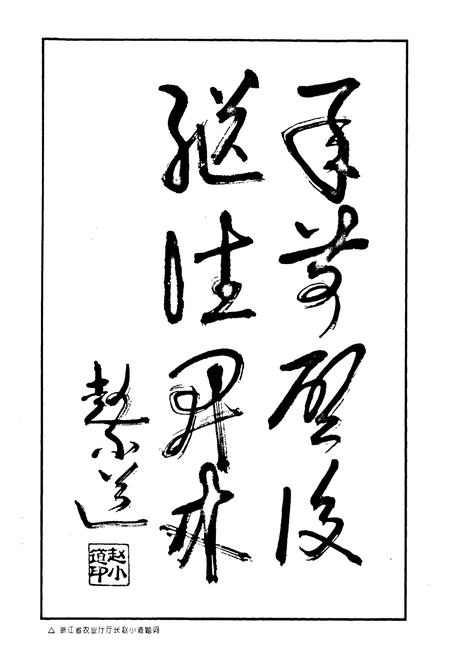 承前启後
继往開来
赵小道
赵小道印
△ 浙江省农业厅厅长赵小道题词